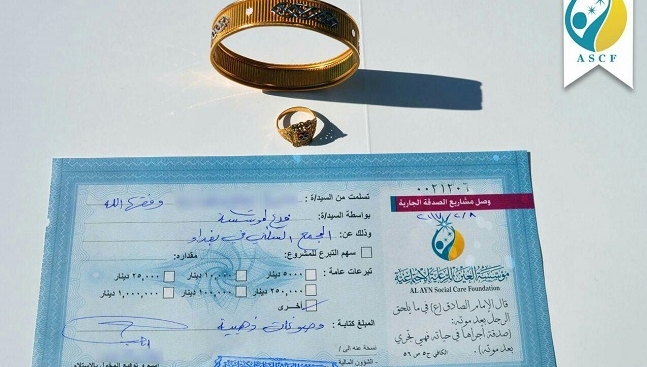 ASCF
٠٠٢١٢٠٦
وصل مشاريع الصدقة الجارية
مؤسسة العين للرعاية الاجتماعية
AL AYN Social Care Foundation
قال الإمام الصادق (ع) في ما يلحق
الرجل بعد موته:
(صدقة اجراها في حياته فهي تجري
بعد موته).
الكافي ج٥ ص٥٦
تسلمت من السيد/ة: وفقها الله
بواسطة السيد/ة:
وذلك عن: المجمع السكني في بغداد
سهم التبرع للمشروع: مقداره:
تبرعات عامة: ٥٠٠٠ دينار ١٠,٠٠٠ دينار ٢٥,٠٠٠ دينار
٢٥٠,٠٠٠ دينار ١٠٠,٠٠٠ دينار ١,٠٠٠,٠٠٠ دينار
أخرى
المبلغ كتابة: مصوغات ذهبية
نسخة عنه إلى /
الشؤون المالية
اسم و توقيع المخول بالاستلام